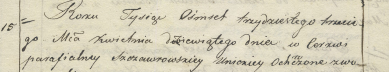 15 = Roku Tysiąc Ośmset trzydziestego trzecie
go Mca Kwietnia dziewiątego dnia, w Cerkwi
parafialney Szczawrowskiey Unickiey Ochrzone zwa